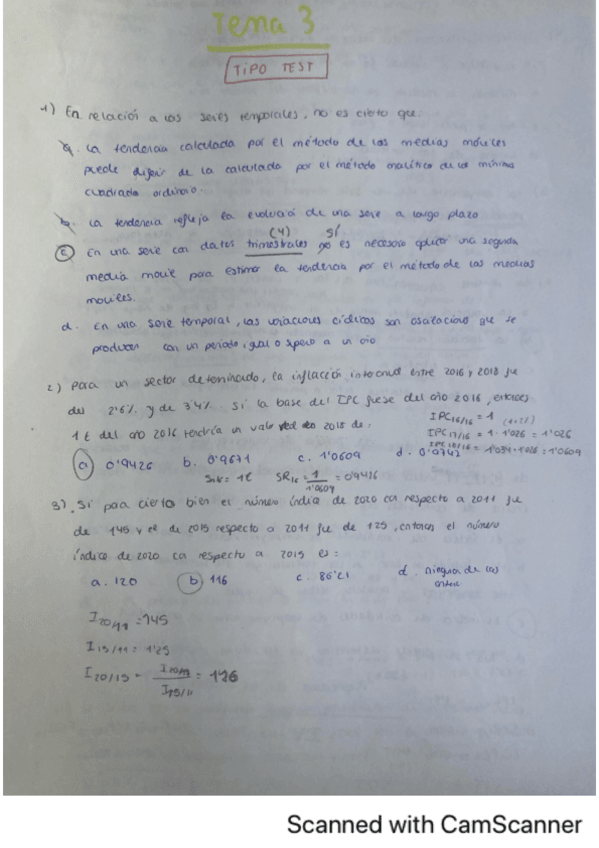 Tema 3
TIPO TEST
1) En relación a las series temporales, no es cierto que:
a. La tendencia calculada por el método de las medias móviles
puede diferir de la calculada por el método analítico de los mínimo
cuadrado ordinario.
b. La tendencia refleja la evolución de una serie a largo plazo
(4) SÍ
c. En una serie con datos trimestrales no es necesario aplicar una segunda
media movil para estimar la tendencia por el método de las medias
moviles.
d. En una serie temporal, las variaciones cíclicas son oscilaciones que se
producen con un periodo igual o supeior a un año
2) Para un sector determinado, la inflación interanual entre 2016 y 2018 fue
del 2'6% y de 3'4%. Si la base del IPC fuese del año 2016, entonces
IPC16/16 = 1
1€ del año 2016 tendría un valor real en 2018 de:
IPC17/16 = 1 · 1'026 = 1'026
IPC18/16 = 1'034 · 1'026 = 1'0609
a 0'9426 b. 0'9671 c. 1'0609 d. 0'0742
= 1€ SR16 = 1/1'0609 = 0'9426
3) Si para cierto bien el número índice de 2020 con respecto a 2011 fue
de 145 y el de 2015 respecto a 2011 fue de 125, entonces el número
índice de 2020 con respecto a 2015 es:
a. 120 b) 116 c. 86'21 d. Ninguna de las
I20/11 = 145
I15/11 = 1'25
I20/15 = I20/11 / I15/11 = 1'26
Scanned with CamScanner